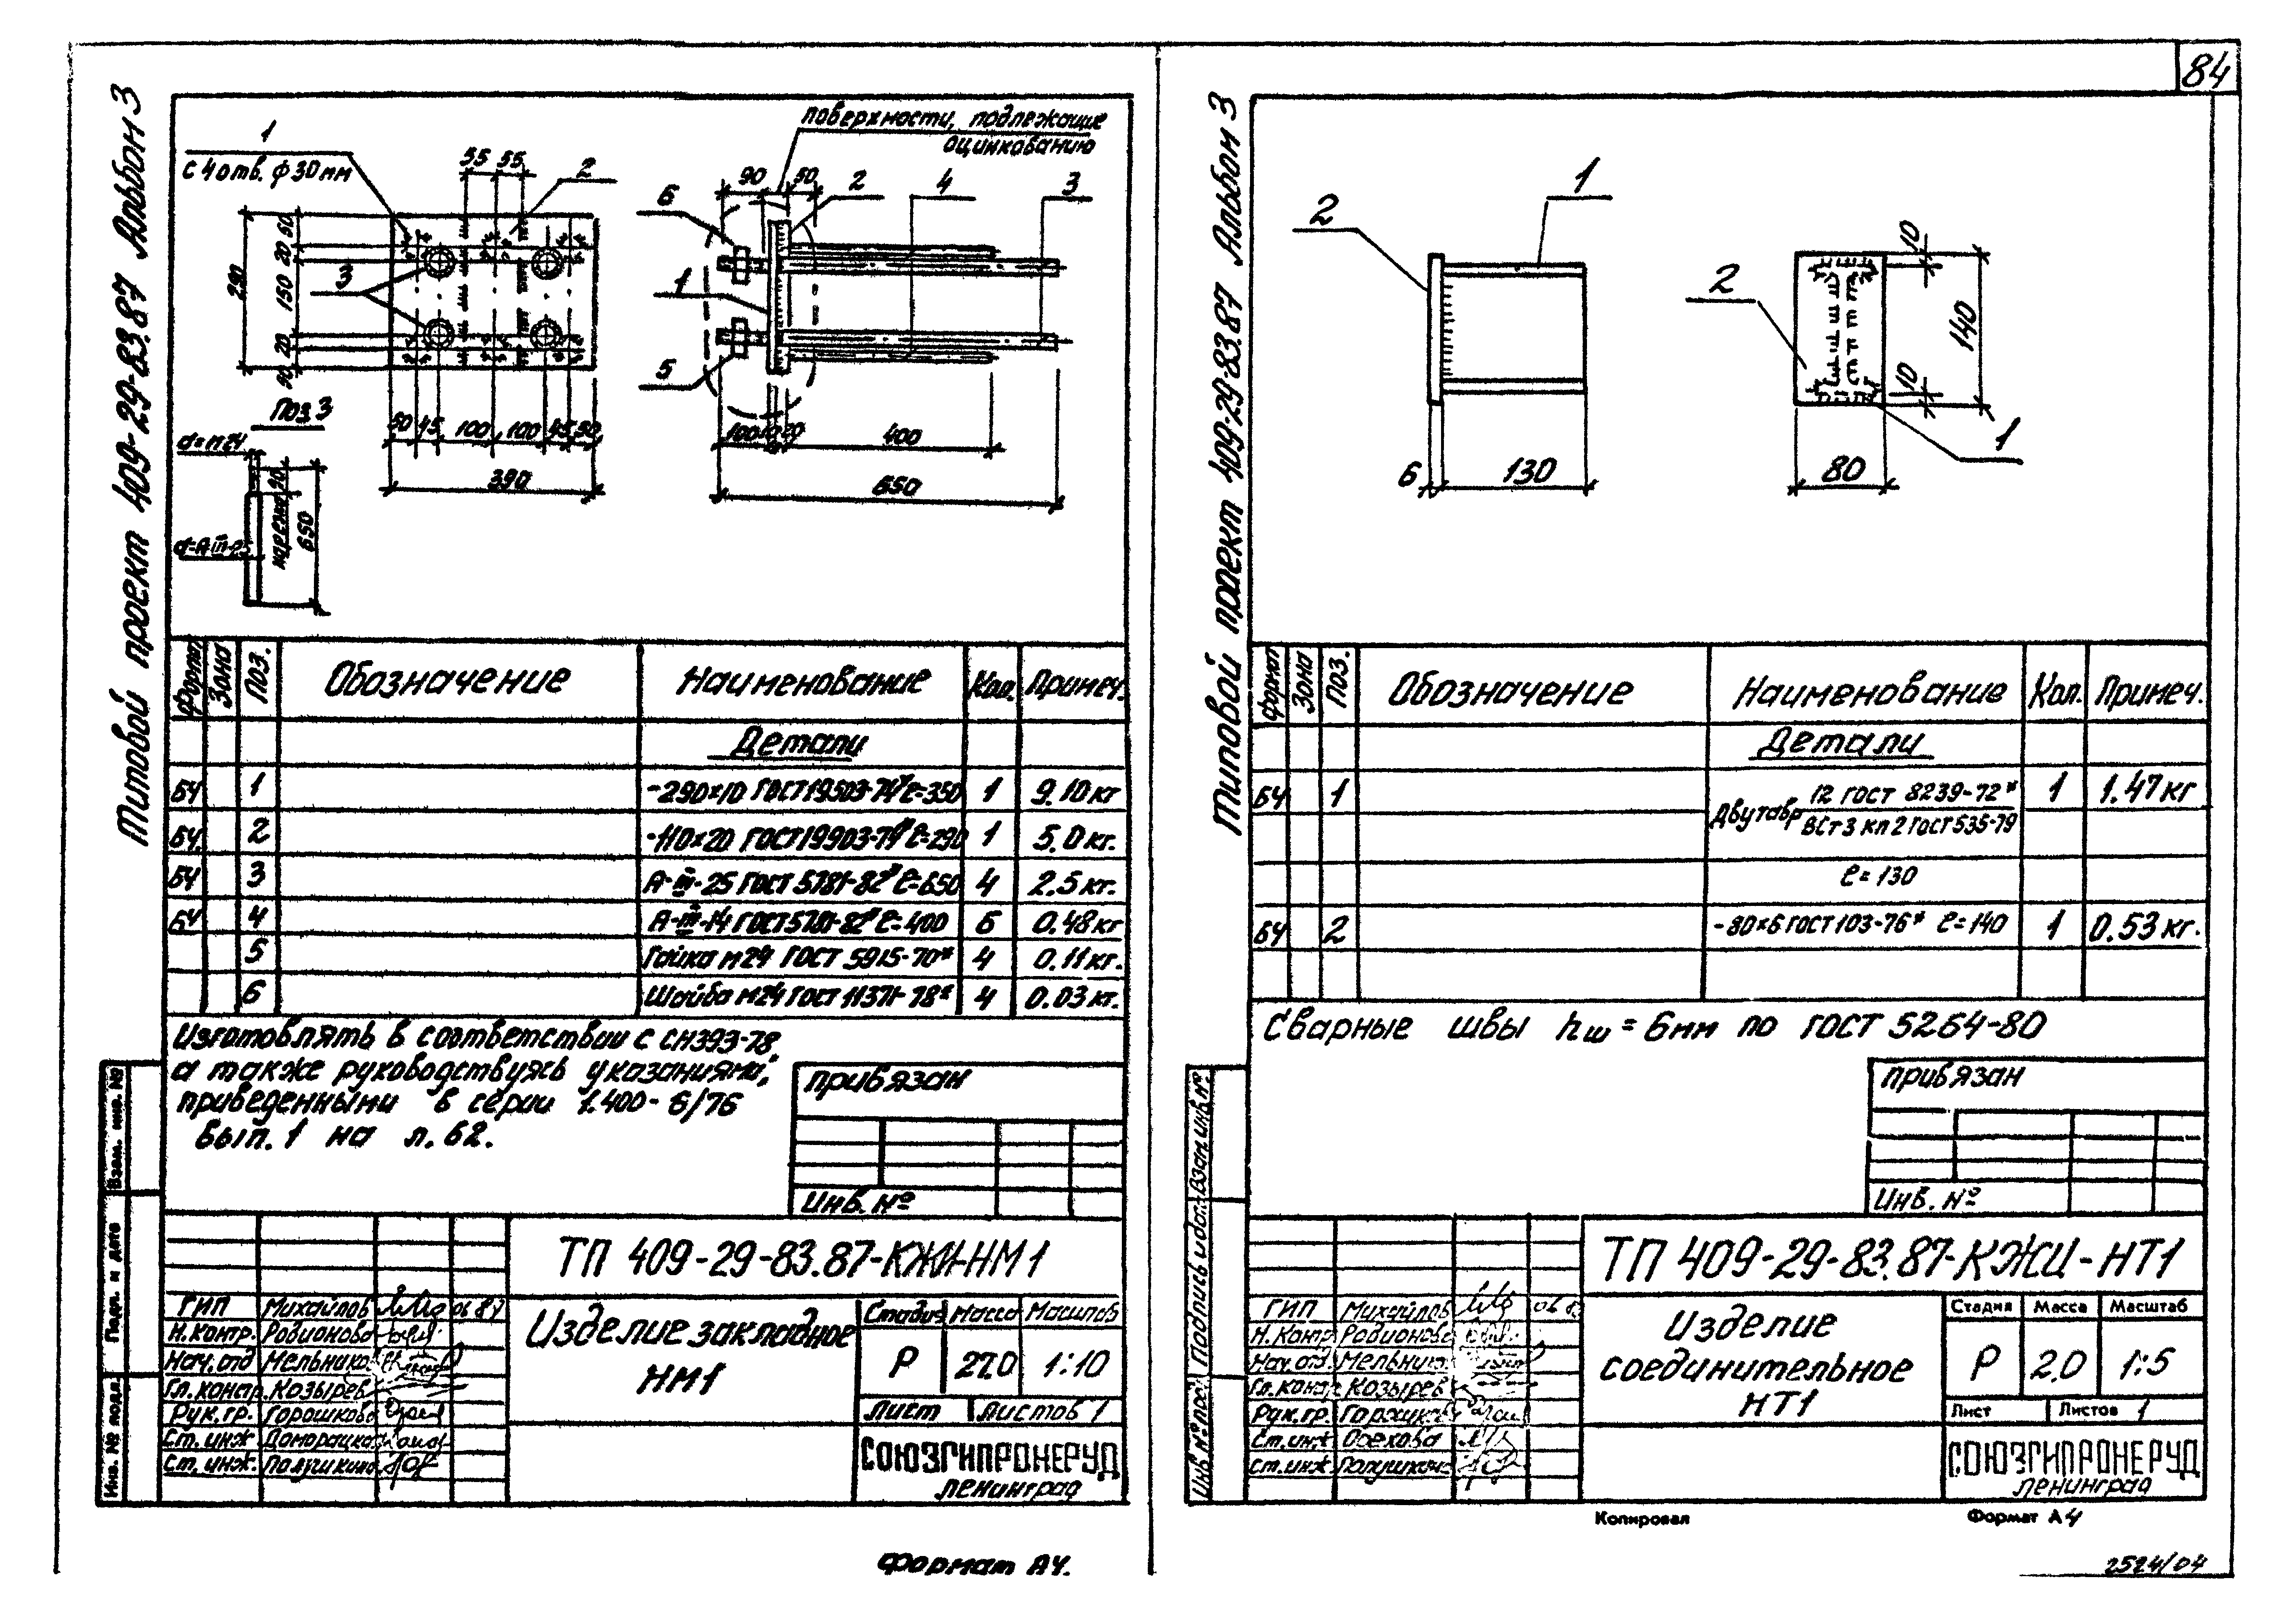 84
Типовой проект 409-29-83.87 Альбом 3
1
с 4 отв. ф 30 мм
55 55
2
290
50
20
150
20
90
3
50 45 100 100 45 50
390
Поз 3
d=м24
нарезка
650
d=А-III-25
поверхности, подлежащие
оцинкованию
90 50
6
2
4
3
1
5
100 10 20
400
650
Формат Зона Поз. Обозначение Наименование Кол. Примеч.
Детали
БЧ 1 -290×10 ГОСТ 19503-74* ℓ=350 1 9.10 кг
БЧ. 2 -110×20 ГОСТ 19903-74* ℓ=290 1 5.0 кг.
БЧ 3 А-III-25 ГОСТ 5781-82* ℓ=650 4 2.5 кг.
БЧ 4 А-III-14 ГОСТ 5781-82* ℓ=400 6 0.48 кг
5 Гайка м24 ГОСТ 5915-70* 4 0.11 кг.
6 Шайба м24 ГОСТ 11371-78* 4 0.03 кг.
Изготовлять в соответствии с СН393-78,
а также руководствуясь указаниями,
приведенными в серии 1.400-6/76
Вып. 1 на л. 62.
привязан
Инв. №
Взам. инв. №
Подп. и дата
Инв. № подл.
ТП 409-29-83.87-КЖИ-НМ1
ГИП Михайлов 06 87
Н.контр. Родионова
Нач. отд Мельников
Гл. констр. Козырев
Рук. гр. Горошкова
Ст. инж
Ст. инж.
Изделие закладное
НМ1
Стадия Масса Масштаб
Р 27.0 1:10
Лист Листов 1
СОЮЗГИПРОНЕРУД
Ленинград
Формат А4.
Типовой проект 409-29-83.87 Альбом 3
2
1
6 130
2
10
140
10
1
80
Формат Зона Поз. Обозначение Наименование Кол. Примеч.
Детали
БЧ 1 Двутавр 12 ГОСТ 8239-72* 1 1.47 кг
ВСт3 кп2 ГОСТ 535-79
ℓ=130
БЧ 2 -80×6 ГОСТ 103-76* ℓ=140 1 0.53 кг.
Сварные швы hш = 6мм по ГОСТ 5264-80
привязан
Инв. №
Взам инв. №
Подпись и дата
Инв № под
ТП 409-29-83.87-КЖИ-НТ1
ГИП Михайлов 06 8
Н.Контр Родионова
Нач. отд. Мельник
Гл. констр Козырев
Рук. гр. Горошкова
Ст. инж Орехова
Ст. инж
Изделие
соединительное
НТ1
Стадия Масса Масштаб
Р 2.0 1:5
Лист Листов 1
СОЮЗГИПРОНЕРУД
Ленинград
Копировал Формат А4
2524/04